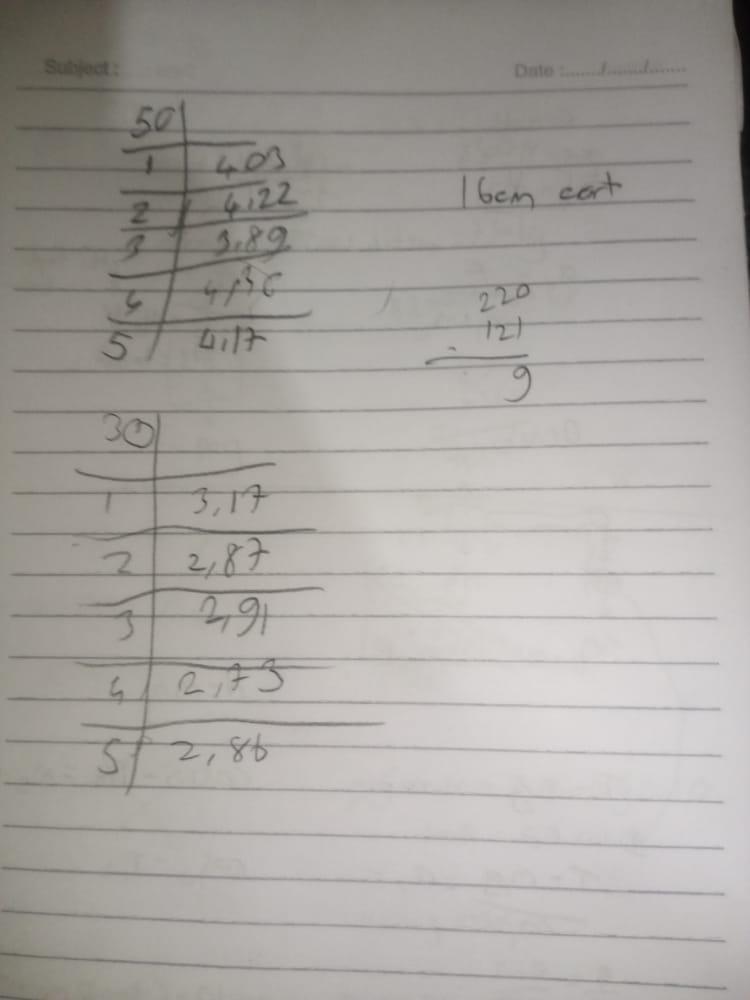 Subject :
Date :....../......./.......
50
1 4.03
2 4,22
3 3.89
4
5 4,17
16cm cart
220
121
9
30
1 3,17
2 2,87
3 2,91
4 2,73
5 2,86